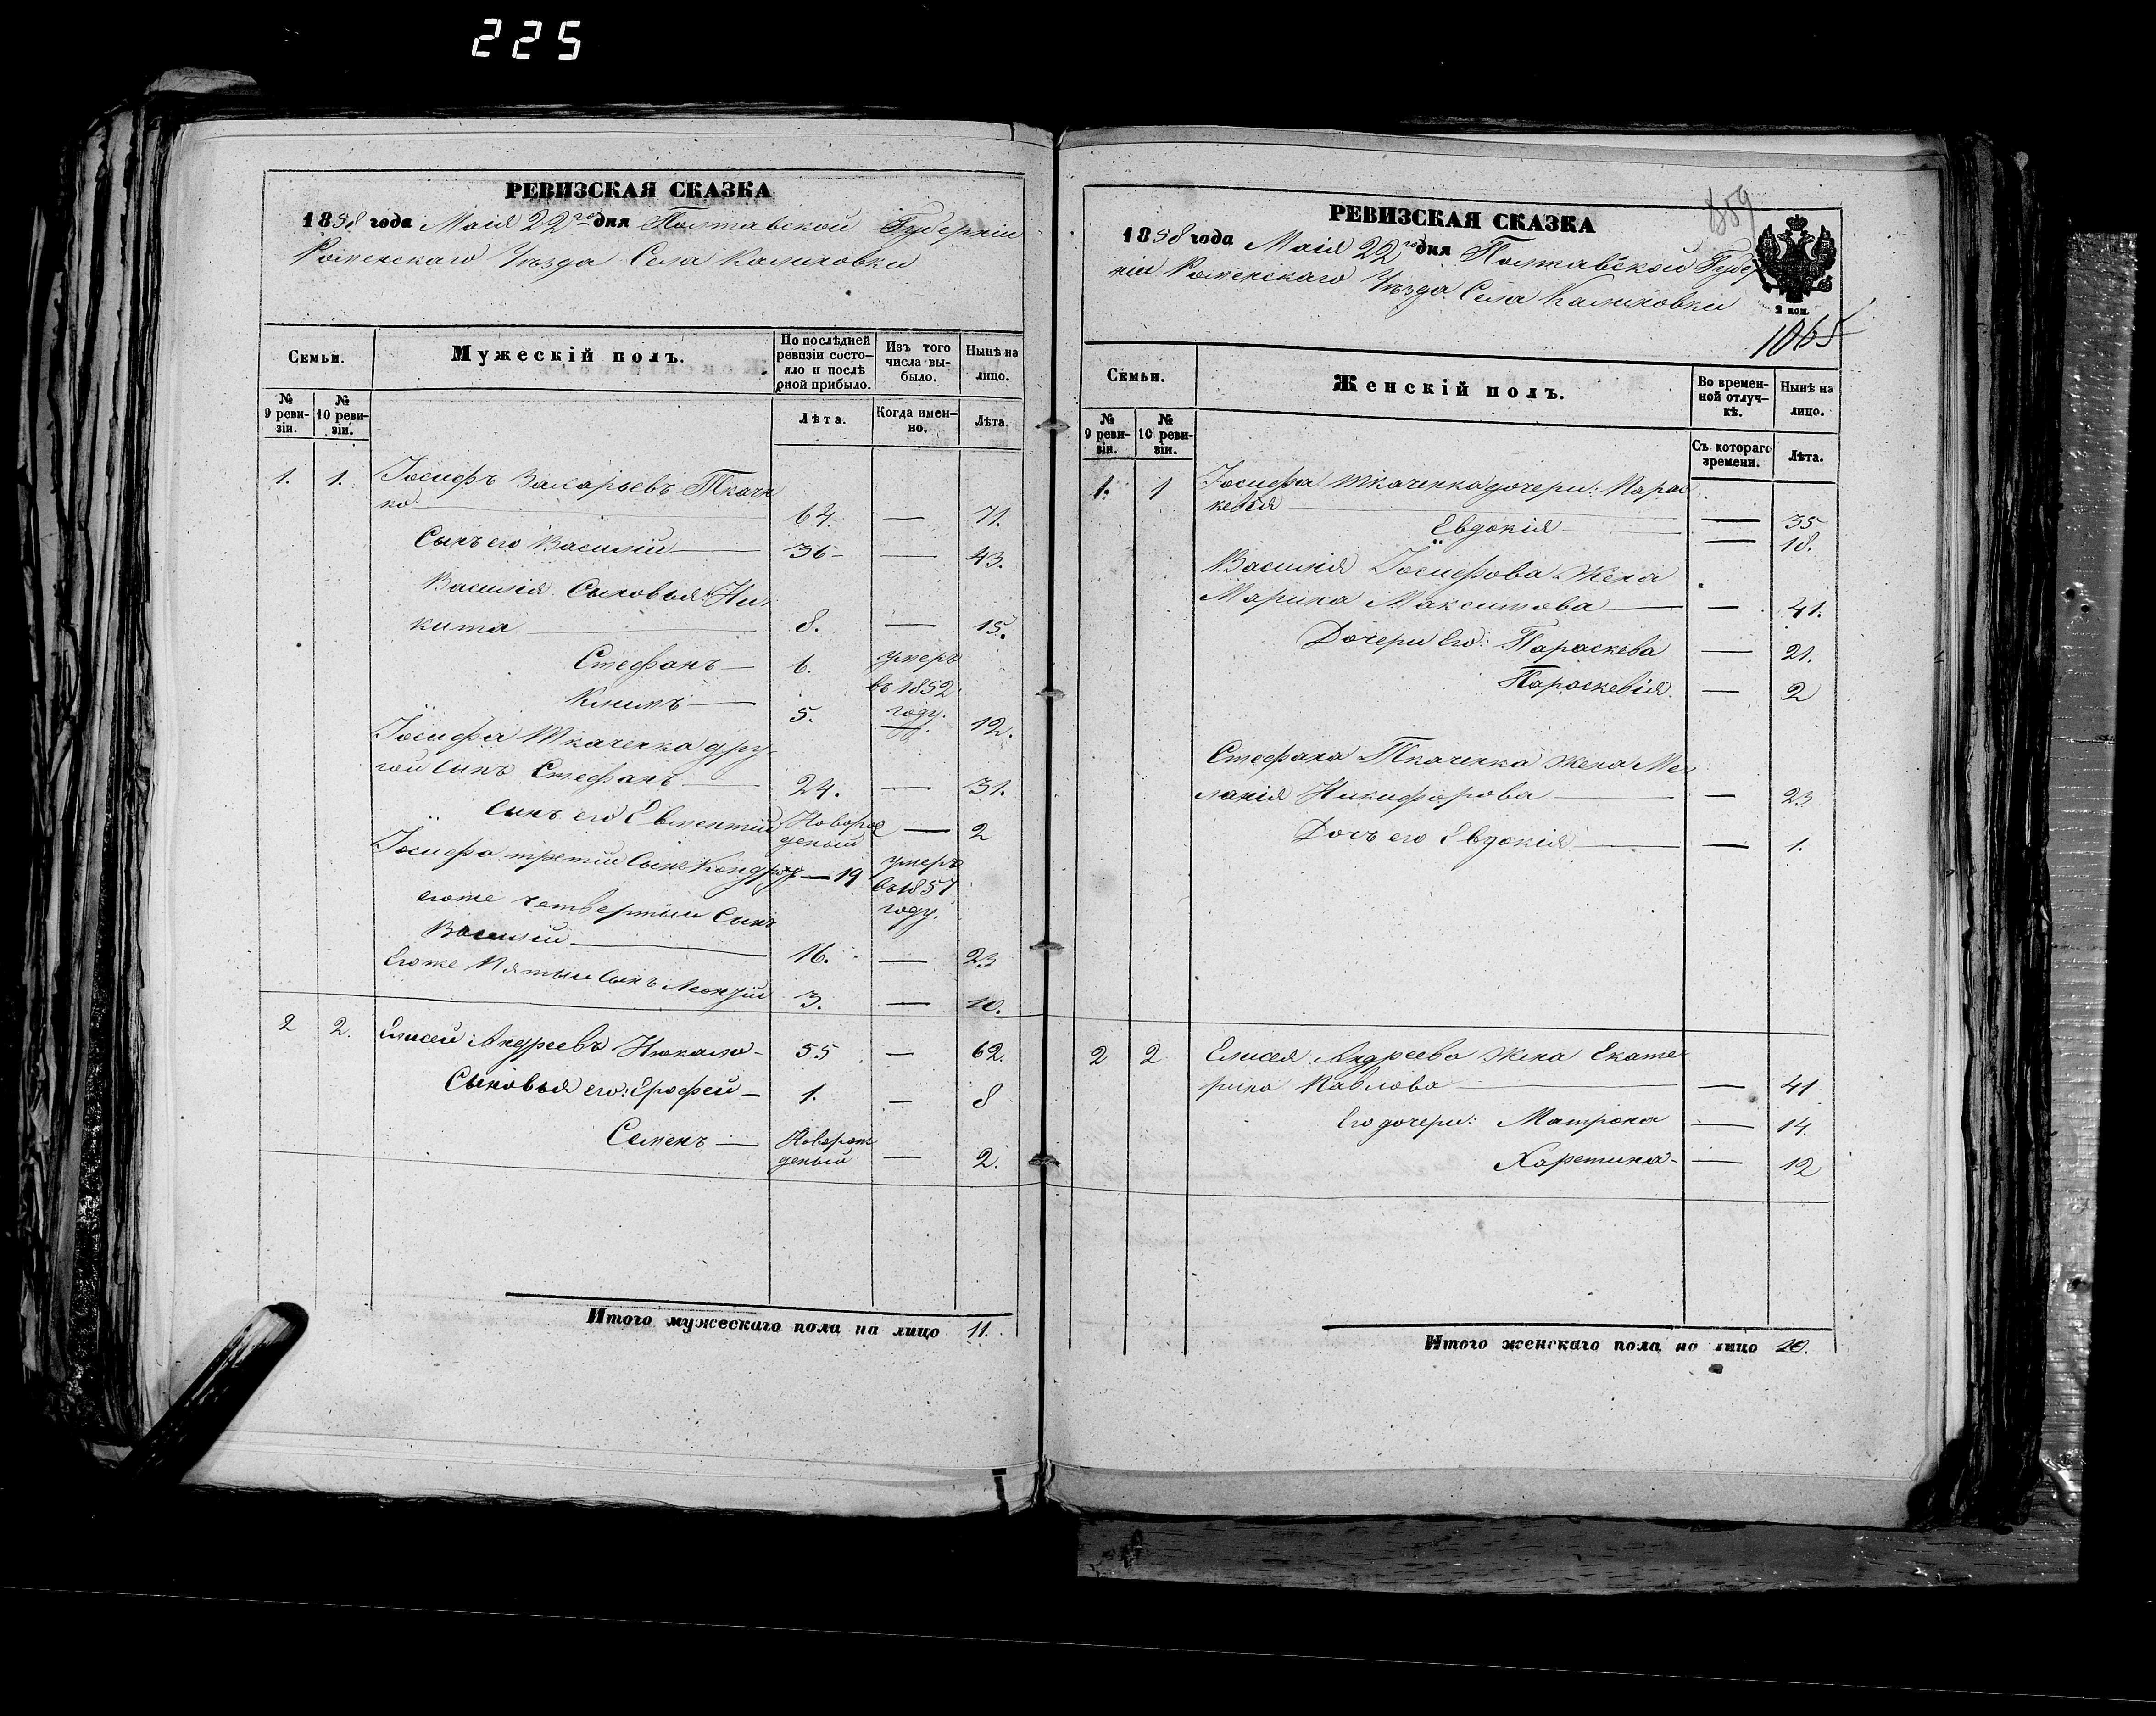 225
РЕВИЗСКАЯ СКАЗКА
1858 года Маія 22го дня Полтавской Губерніи
Роменскаго Уѣзда Села Калиновки
Семьи.
Мужескій полъ.
По послѣдней ревизіи состо-
яло и послѣ
оной прибыло.
Изъ того
числа вы-
было.
Нынѣ на
лицо.
№
9 реви-
зіи.
№
10 реви-
зіи.
Лѣта.
Когда имен-
но.
Лѣта.
1. 1. Іосифъ Захарьевъ Ткачен
ко 64. — 71.
Сынъ его Василій 36 — 43.
Василія Сыновья: Ни-
кита 8. — 15.
Стефанъ 6. умеръ
въ 1852
году.
Климъ 5. — 12.
Іосифа Ткаченка дру-
гой Сынъ Стефанъ 24. — 31.
Сынъ его Евментій Новорож
деный — 2
Іосифа третій Сынъ Кондратъ — 19 умеръ
въ 1857
году.
егоже четвертый Сынъ
Василій 16. — 23
Егоже Пятый Сынъ Леонтій 3. — 10.
2 2. Елисей Андреевъ 55 — 62.
Сыновья его: Ерофей 1. — 8
Семенъ Новорож
деный — 2.
Итого мужескаго пола на лицо 11.
859
РЕВИЗСКАЯ СКАЗКА
1858 года Маія 22го дня Полтавской Губер
ніи Роменскаго Уѣзда Села Калиновки
2 коп.
1065
Семьи.
Женскій полъ.
Во времен-
ной отлуч-
кѣ.
Нынѣ на
лицо.
№
9 реви-
зіи.
№
10 реви-
зіи.
Съ котораго
времени.
Лѣта.
1. 1 Іосифа Ткаченка дочери: Парас
кевія — 35
Евдокія — 18.
Василія Іосифова Жена
Марина Максимова — 41.
Дочери Его: Параскева — 21.
Параскевія — 2
Стефана Ткаченка Жена Ме-
ланія Никифорова — 23
Дочь его Евдокія — 1.
2 2 Елисея Андреева Жена Екате-
рина Павлова — 41
Его дочери: Матрона — 14.
Харетина — 12
Итого женскаго пола на лицо 10.